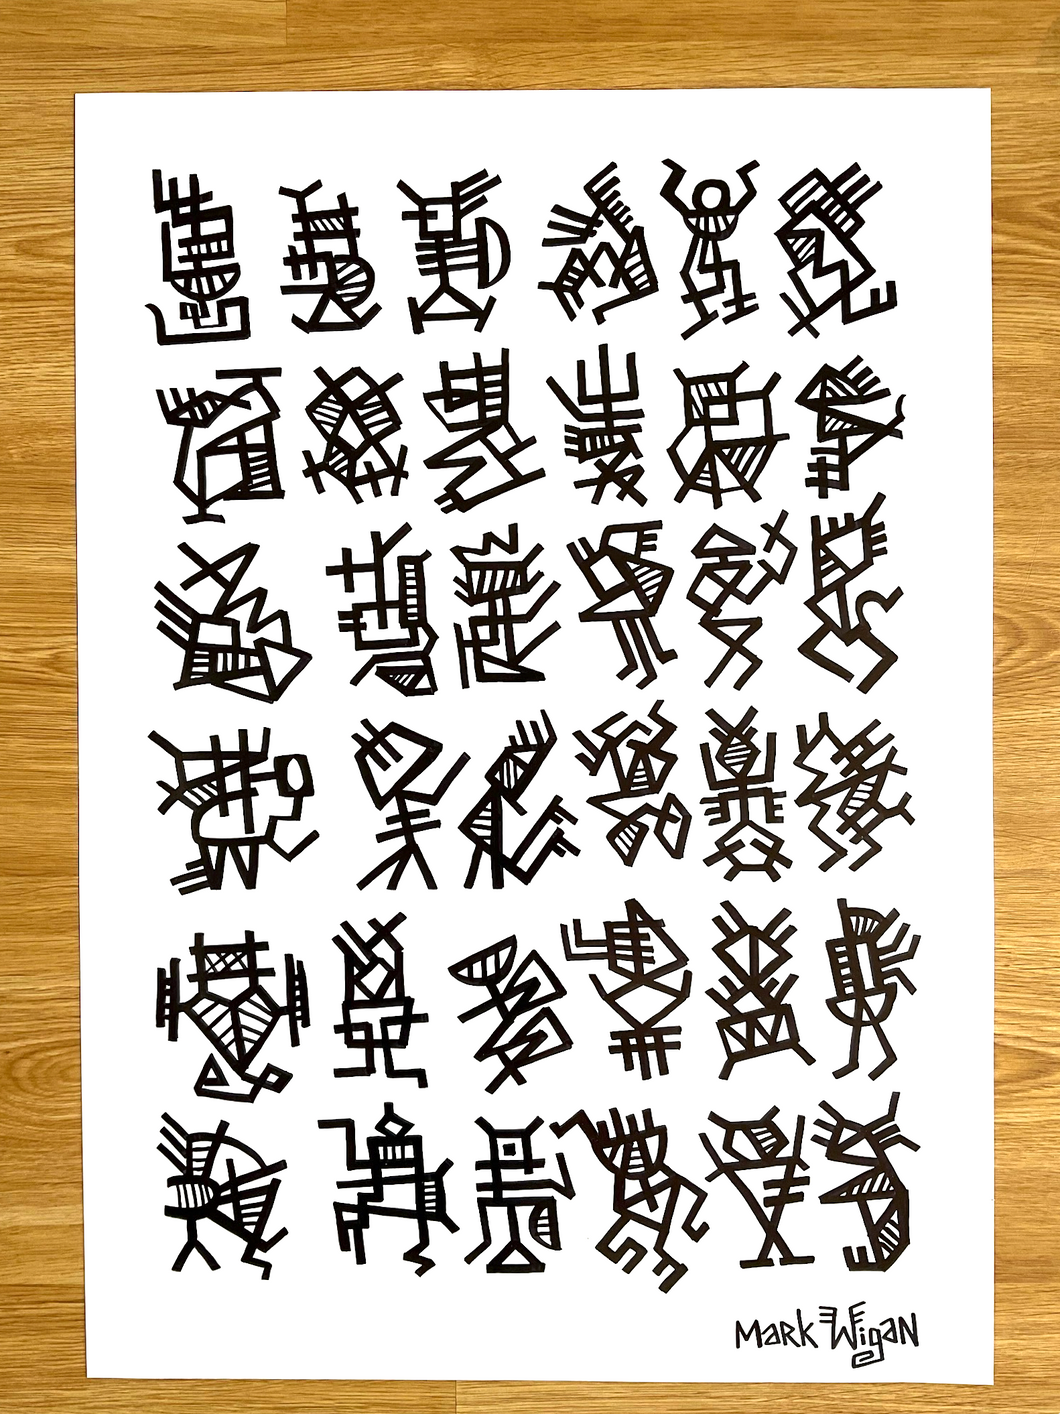 Mark Wigan